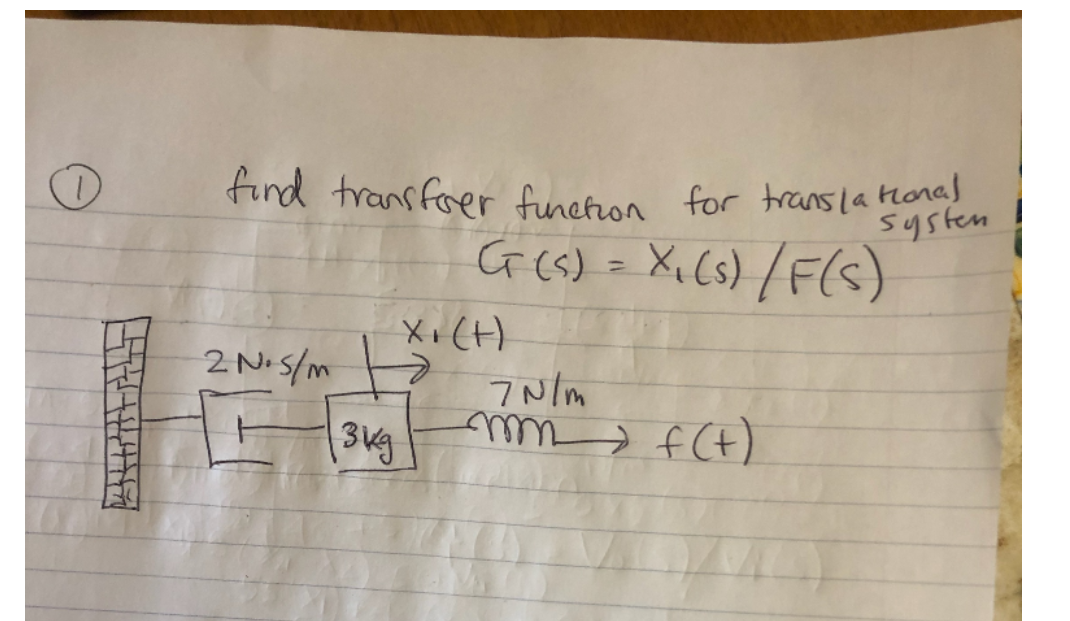 ① find transferer function for translational
system
G(s) = X₁(s) / F(s)
x₁(t)
2 N·s/m
7 N/m
3kg
f(t)